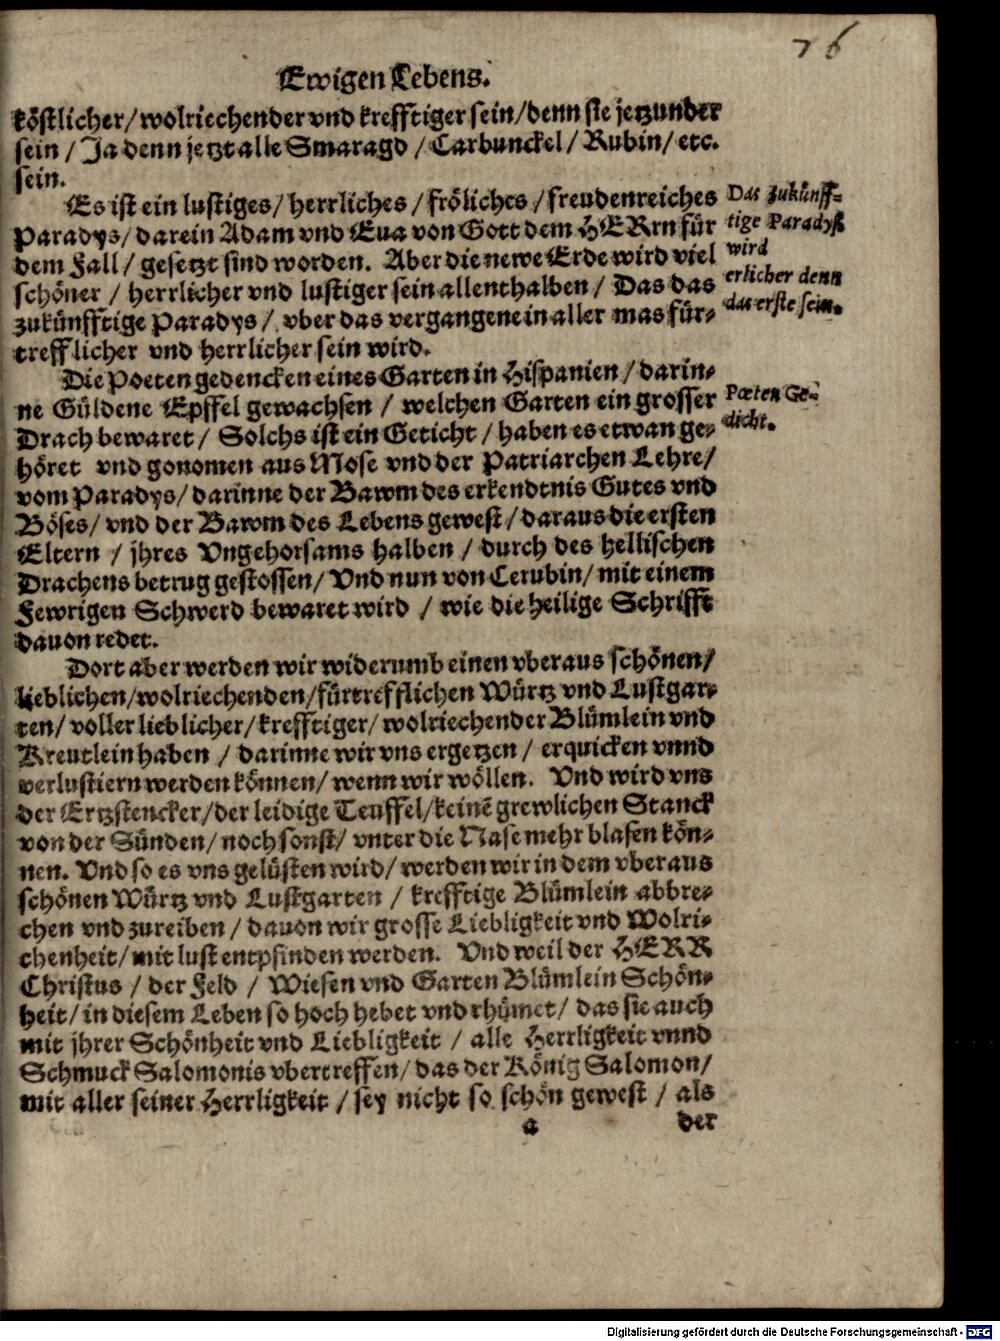 76
Ewigen Lebens.
köstlicher/wolriechender vnd krefftiger sein/denn sie jetzunder
sein / Ja denn jetzt alle Smaragd / Carbunckel/ Rubin/ etc.
sein.
Es ist ein lustiges/ herrliches / fröliches /freudenreiches
Paradys/ darein Adam vnd Eua von Gott dem HERrn für
dem Fall/ gesetzt sind worden. Aber die newe Erde wird viel
schöner / herrlicher vnd lustiger sein allenthalben/ Das das
zukünfftige Paradys/ vber das vergangene in aller mas für-
trefflicher vnd herrlicher sein wird.
Das zukünff-
tige Paradyß
wird
erlicher denn
das erste sein.
Die Poeten gedencken eines Garten in Hispanien/ darin-
ne Güldene Epffel gewachsen / welchen Garten ein grosser
Drach bewaret/ Solchs ist ein Geticht / haben es etwan ge-
höret vnd gonomen aus Mose vnd der Patriarchen Lehre/
vom Paradys/ darinne der Bawm des erkendtnis Gutes vnd
Böses/ vnd der Bawm des Lebens gewest / daraus die ersten
Eltern / jhres Vngehorsams halben / durch des hellischen
Drachens betrug gestossen/ Vnd nun von Cerubin/ mit einem
Fewrigen Schwerd bewaret wird / wie die heilige Schrifft
dauon redet.
Poeten Ge-
dicht.
Dort aber werden wir widerumb einen vberaus schönen/
lieblichen/wolriechenden/fürtrefflichen Würtz vnd Lustgar-
ten/ voller lieblicher/krefftiger/ wolriechender Blümlein vnd
Kreutlein haben / darinne wir vns ergetzen / erquicken vnnd
verlustiern werden können/ wenn wir wöllen. Vnd wird vns
der Ertzstencker/der leidige Teuffel/keinē grewlichen Stanck
von der Sünden/ noch sonst/ vnter die Nase mehr blasen kön-
nen. Vnd so es vns gelüsten wird/ werden wir in dem vberaus
schönen Würtz vnd Lustgarten / krefftige Blümlein abbre-
chen vnd zureiben / dauon wir grosse Liebligkeit vnd Wolri-
chenheit/ mit lust entpfinden werden. Vnd weil der HERR
Christus / der Feld / Wiesen vnd Garten Blümlein Schön-
heit/ in diesem Leben so hoch hebet vnd rhümet/ das sie auch
mit jhrer Schönheit vnd Liebligkeit / alle Herrligkeit vnnd
Schmuck Salomonis vbertreffen/ das der König Salomon/
mit aller seiner Herrligkeit / sey nicht so schön gewest / als
a der
Digitalisierung gefördert durch die Deutsche Forschungsgemeinschaft - DFG